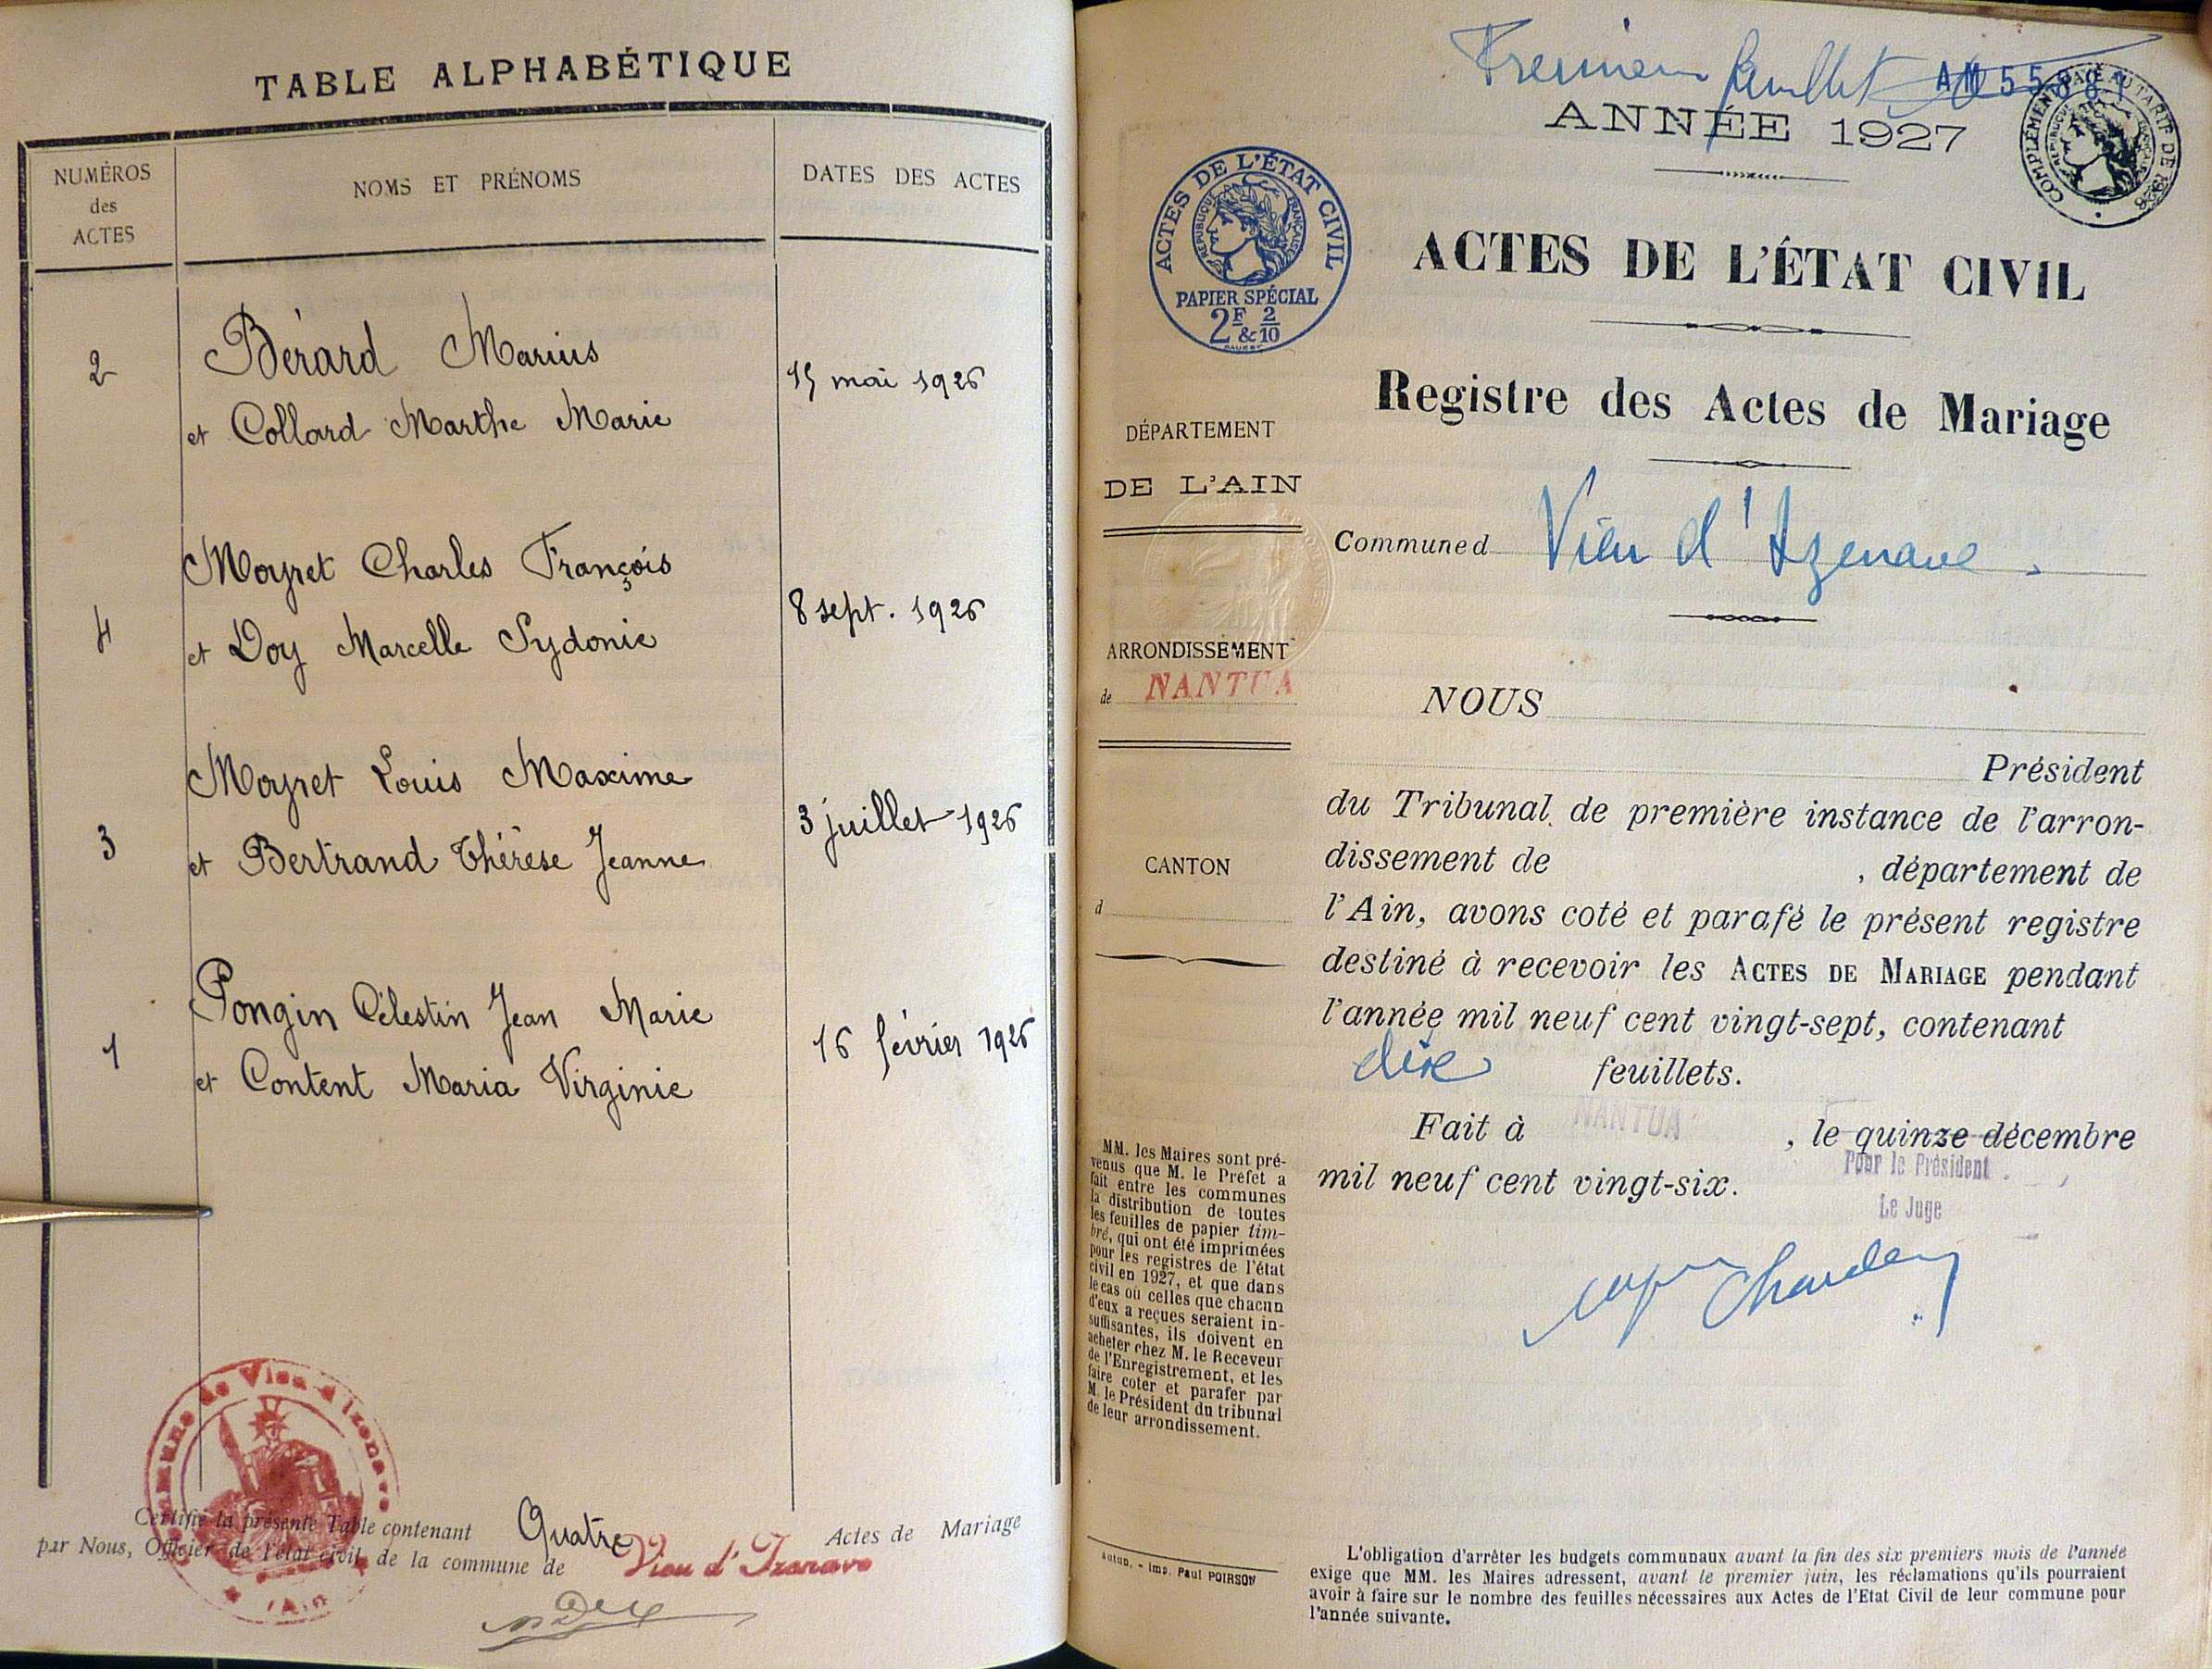 TABLE ALPHABÉTIQUE
NUMÉROS
des
ACTES
NOMS ET PRÉNOMS
DATES DES ACTES
2
Bérard Marius
et Collard Marthe Marie
15 mai 1926
4
Moyret Charles François
et Doy Marcelle Sydonie
8 sept. 1926
3
Moyret Louis Maxime
et Bertrand Thérèse Jeanne
3 juillet 1926
1
Pongin Célestin Jean Marie
et Content Maria Virginie
16 février 1926
Commune de Vieu-d'Izenave
(Ain)
Certifié la présente Table contenant Quatre Actes de Mariage
par Nous, Officier de l'état civil de la commune de Vieu d'Izenave
Premier feuillet
AM 55
COMPLÉMENT PAYÉ AU TARIF DE 1926
RÉPUBLIQUE FRANÇAISE
ANNÉE 1927
ACTES DE L'ÉTAT CIVIL
RÉPUBLIQUE FRANÇAISE
PAPIER SPÉCIAL
2F & 2/10
ACTES DE L'ÉTAT CIVIL
Registre des Actes de Mariage
DÉPARTEMENT
DE L'AIN
Commune d Vieu d'Izenave.
ARRONDISSEMENT
de NANTUA
CANTON
d
NOUS
Président
du Tribunal de première instance de l'arron-
dissement de , département de
l'Ain, avons coté et parafé le présent registre
destiné à recevoir les ACTES DE MARIAGE pendant
l'année mil neuf cent vingt-sept, contenant
dix feuillets.
Fait à NANTUA , le quinze décembre
mil neuf cent vingt-six.
Pour le Président
Le Juge
MM. les Maires sont pré-
venus que M. le Préfet a
fait entre les communes
la distribution de toutes
les feuilles de papier tim-
bré, qui ont été imprimées
pour les registres de l'état
civil en 1927, et que dans
le cas où celles que chacun
d'eux a reçues seraient in-
suffisantes, ils doivent en
acheter chez M. le Receveur
de l'Enregistrement, et les
faire coter et parafer par
M. le Président du tribunal
de leur arrondissement.
Autun. - Imp. Paul POIRSON
L'obligation d'arrêter les budgets communaux avant la fin des six premiers mois de l'année
exige que MM. les Maires adressent, avant le premier juin, les réclamations qu'ils pourraient
avoir à faire sur le nombre des feuilles nécessaires aux Actes de l'Etat Civil de leur commune pour
l'année suivante.